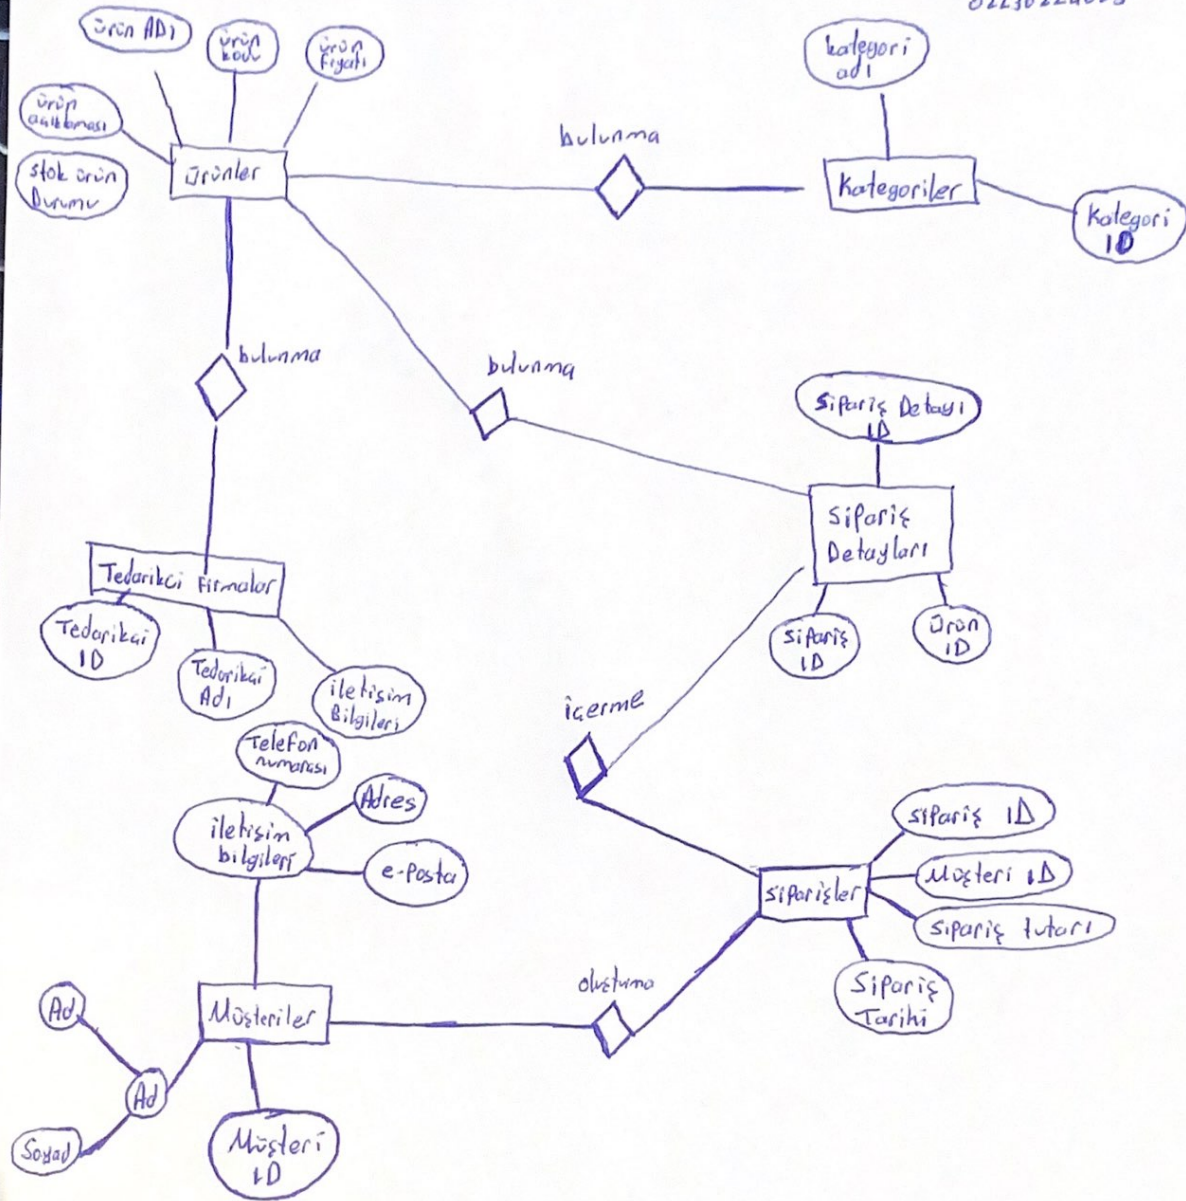 ürün ADI
ürün
kodu
ürün
fiyatı
kategori
adı
ürün
açıklaması
stok ürün
Durumu
ürünler
bulunma
Kategoriler
Kategori
ID
bulunma
bulunma
Sipariş Detayı
ID
Sipariş
Detayları
Tedarikçi Firmalar
Tedarikçi
ID
Tedarikçi
Adı
iletişim
Bilgileri
Sipariş
ID
ürün
ID
içerme
Telefon
numarası
Adres
iletişim
bilgileri
e-posta
sipariş ID
Müşteri ID
Siparişler
sipariş tutarı
Sipariş
Tarihi
oluşturma
Müşteriler
Ad
Ad
Soyad
Müşteri
ID